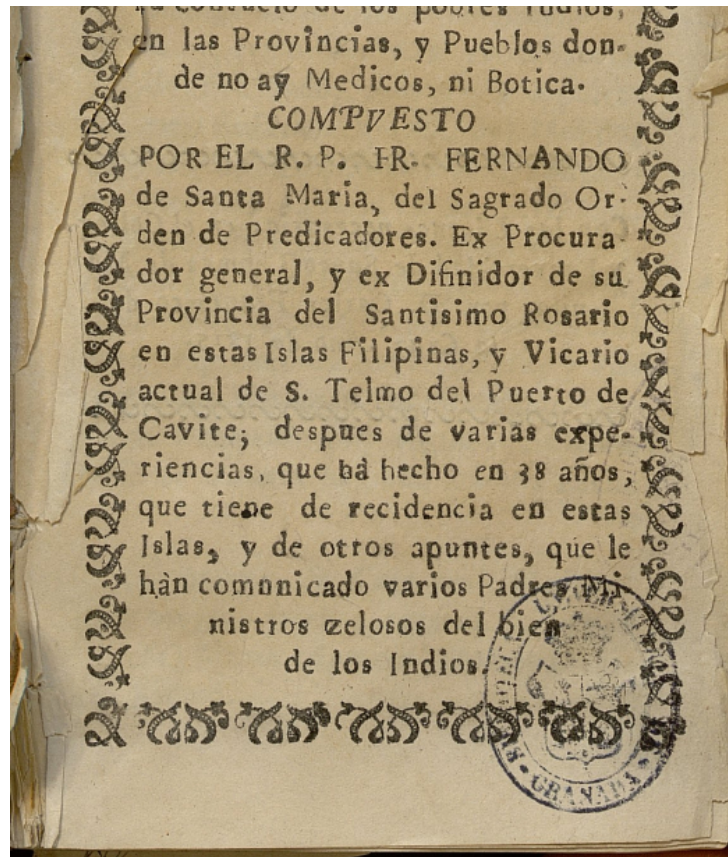 de los pobres Indios,
en las Provincias, y Pueblos don-
de no ay Medicos, ni Botica.
COMPVESTO
POR EL R. P. FR. FERNANDO
de Santa Maria, del Sagrado Or-
den de Predicadores. Ex Procura-
dor general, y ex Difinidor de su
Provincia del Santisimo Rosario
en estas Islas Filipinas, y Vicario
actual de S. Telmo del Puerto de
Cavite; despues de varias expe-
riencias, que há hecho en 38 años,
que tiene de recidencia en estas
Islas, y de otros apuntes, que le
hàn comunicado varios Padres Mi-
nistros zelosos del bien
de los Indios.
GRANADA